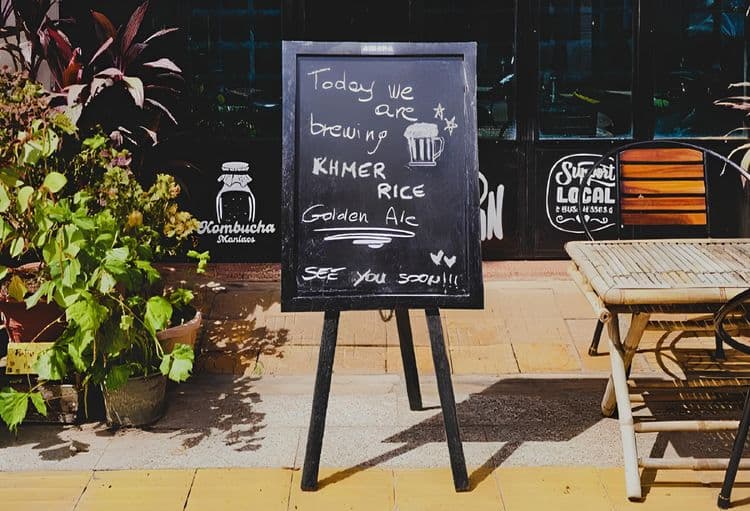 Today we
are
brewing
KHMER
RICE
Golden Ale
SEE YOU SOON!!!
Kombucha
Maniacs
Support
LOCAL
BUSINESSES